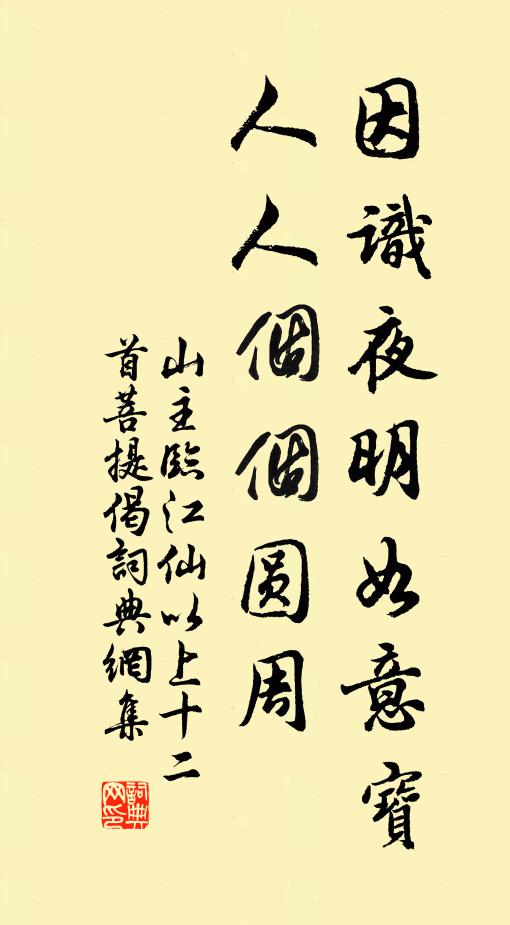 因識夜明如意寶
人人個個圆周
山主臨江仙以上十二
首菩提偈詞典網集
詞典
网印